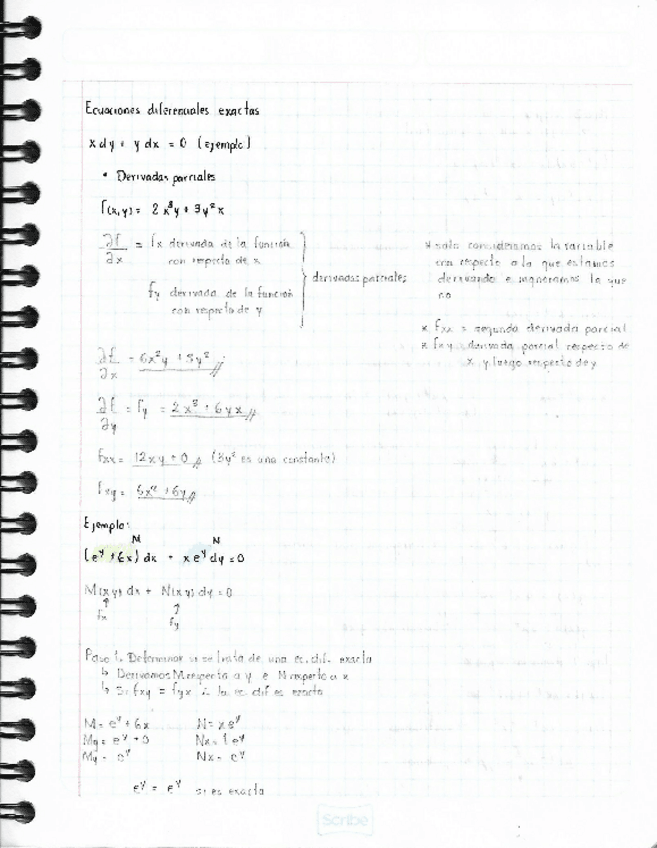 Ecuaciones diferenciales exactas
x dy + y dx = 0 (Ejemplo)
• Derivadas parciales
f(x,y) = 2x³y + 3y²x
∂f/∂x = fx derivada de la función
con respecto de x
fy derivada de la función
con respecto de y
derivadas parciales
* solo consideramos la variable
con respecto a la que estamos
derivando e ignoramos la que
no
* fxx = segunda derivada parcial
* fxy derivada parcial respecto de
x y luego respecto de y
∂f/∂x = 6x²y + 3y²
∂f/∂y = fy = 2x³ + 6yx
fxx = 12xy + 0 (3y² es una constante)
fxy = 6x² + 6y
Ejemplo:
M N
(e^y + 6x) dx + x e^y dy = 0
M(x,y) dx + N(x,y) dy = 0
↑ ↑
fx fy
Paso 1. Determinar si se trata de una ec. dif. exacta
↳ Derivamos M respecto a y e N respecto a x
↳ Si fxy = fyx ∴ la ec dif es exacta
M = e^y + 6x N = x e^y
My = e^y + 0 Nx = 1 e^y
My = e^y Nx = e^y
e^y = e^y si es exacta
Scribe